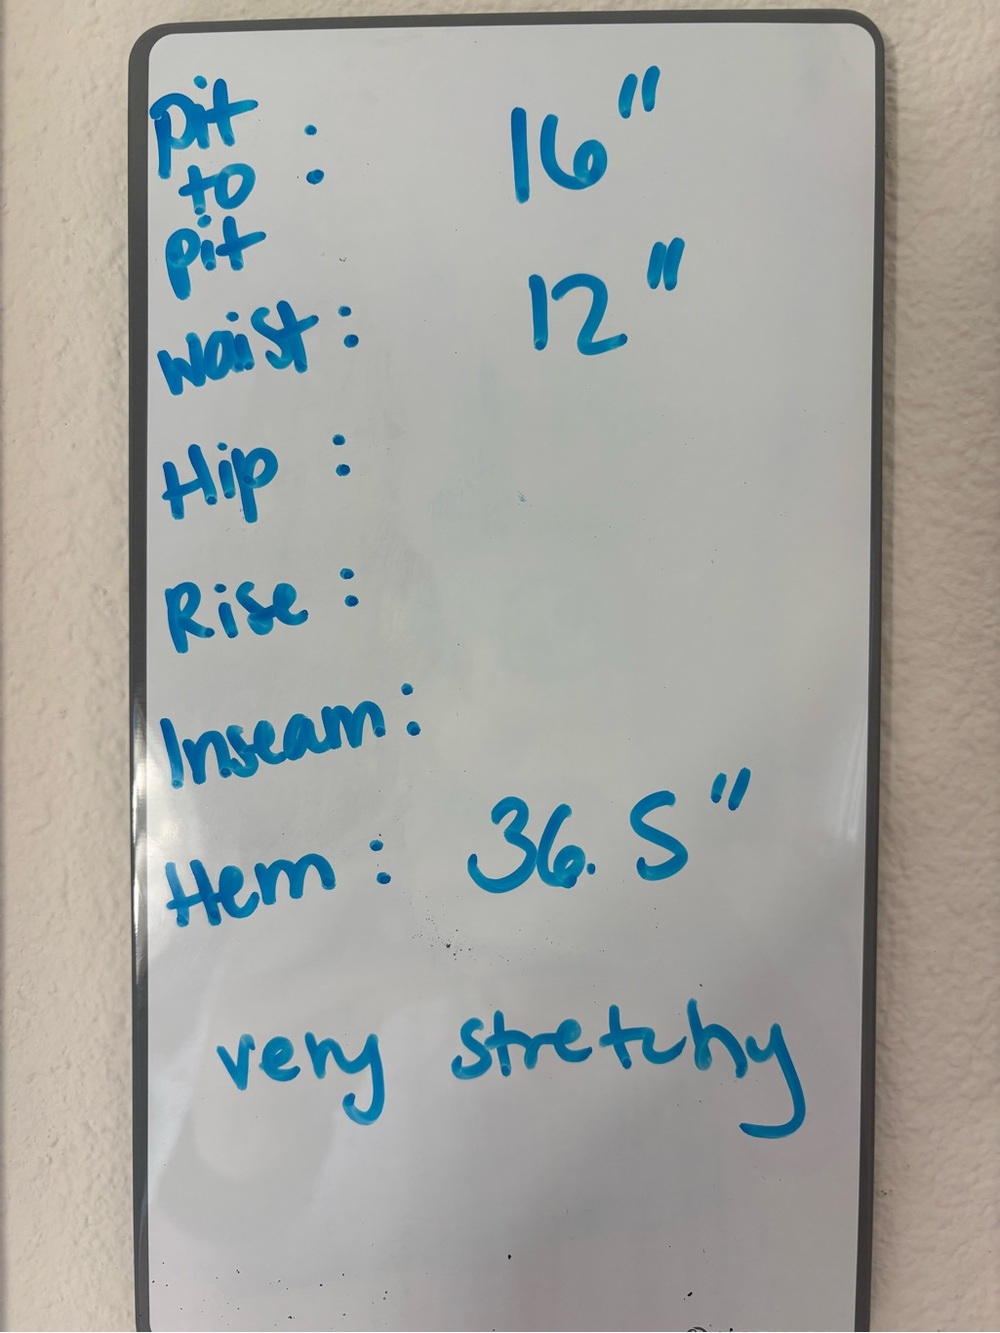 pit
to : 16"
pit
waist: 12"
Hip :
Rise :
Inseam:
Hem : 36.5"
very stretchy